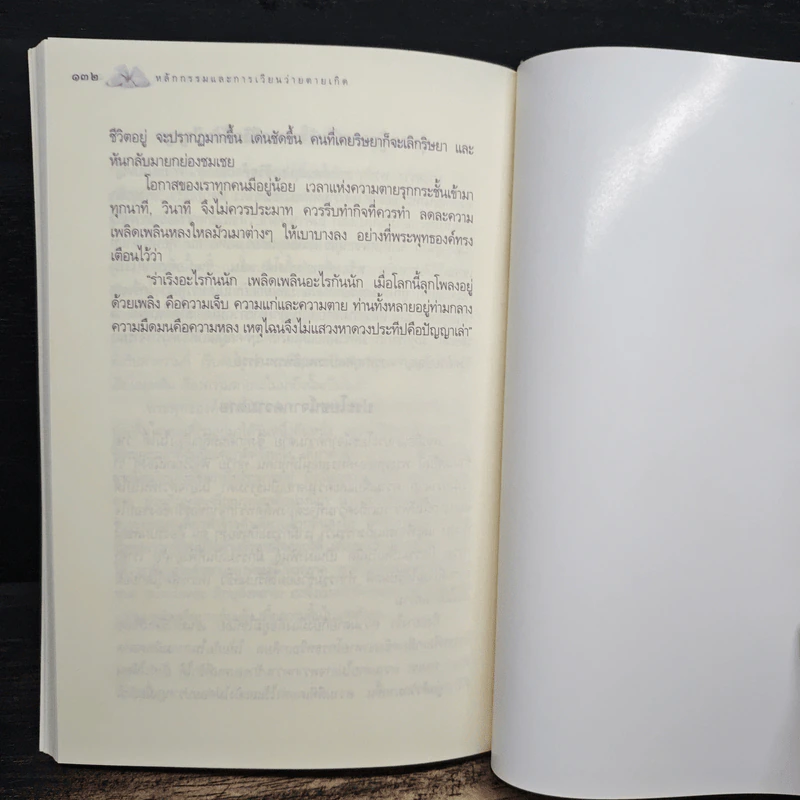 ๑๓๒ หลักกรรมและการเวียนว่ายตายเกิด
ชีวิตอยู่ จะปรากฏมากขึ้น เด่นชัดขึ้น คนที่เคยริษยาก็จะเลิกริษยา และ
หันกลับมายกย่องชมเชย
โอกาสของเราทุกคนมีอยู่น้อย เวลาแห่งความตายรุกกระชั้นเข้ามา
ทุกนาที, วินาที จึงไม่ควรประมาท ควรรีบทำกิจที่ควรทำ ลดละความ
เพลิดเพลินหลงใหลมัวเมาต่างๆ ให้เบาบางลง อย่างที่พระพุทธองค์ทรง
เตือนไว้ว่า
"ร่าเริงอะไรกันนัก เพลิดเพลินอะไรกันนัก เมื่อโลกนี้ลุกโพลงอยู่
ด้วยเพลิง คือความเจ็บ ความแก่และความตาย ท่านทั้งหลายอยู่ท่ามกลาง
ความมืดมนคือความหลง เหตุไฉนจึงไม่แสวงหาดวงประทีปคือปัญญาเล่า"